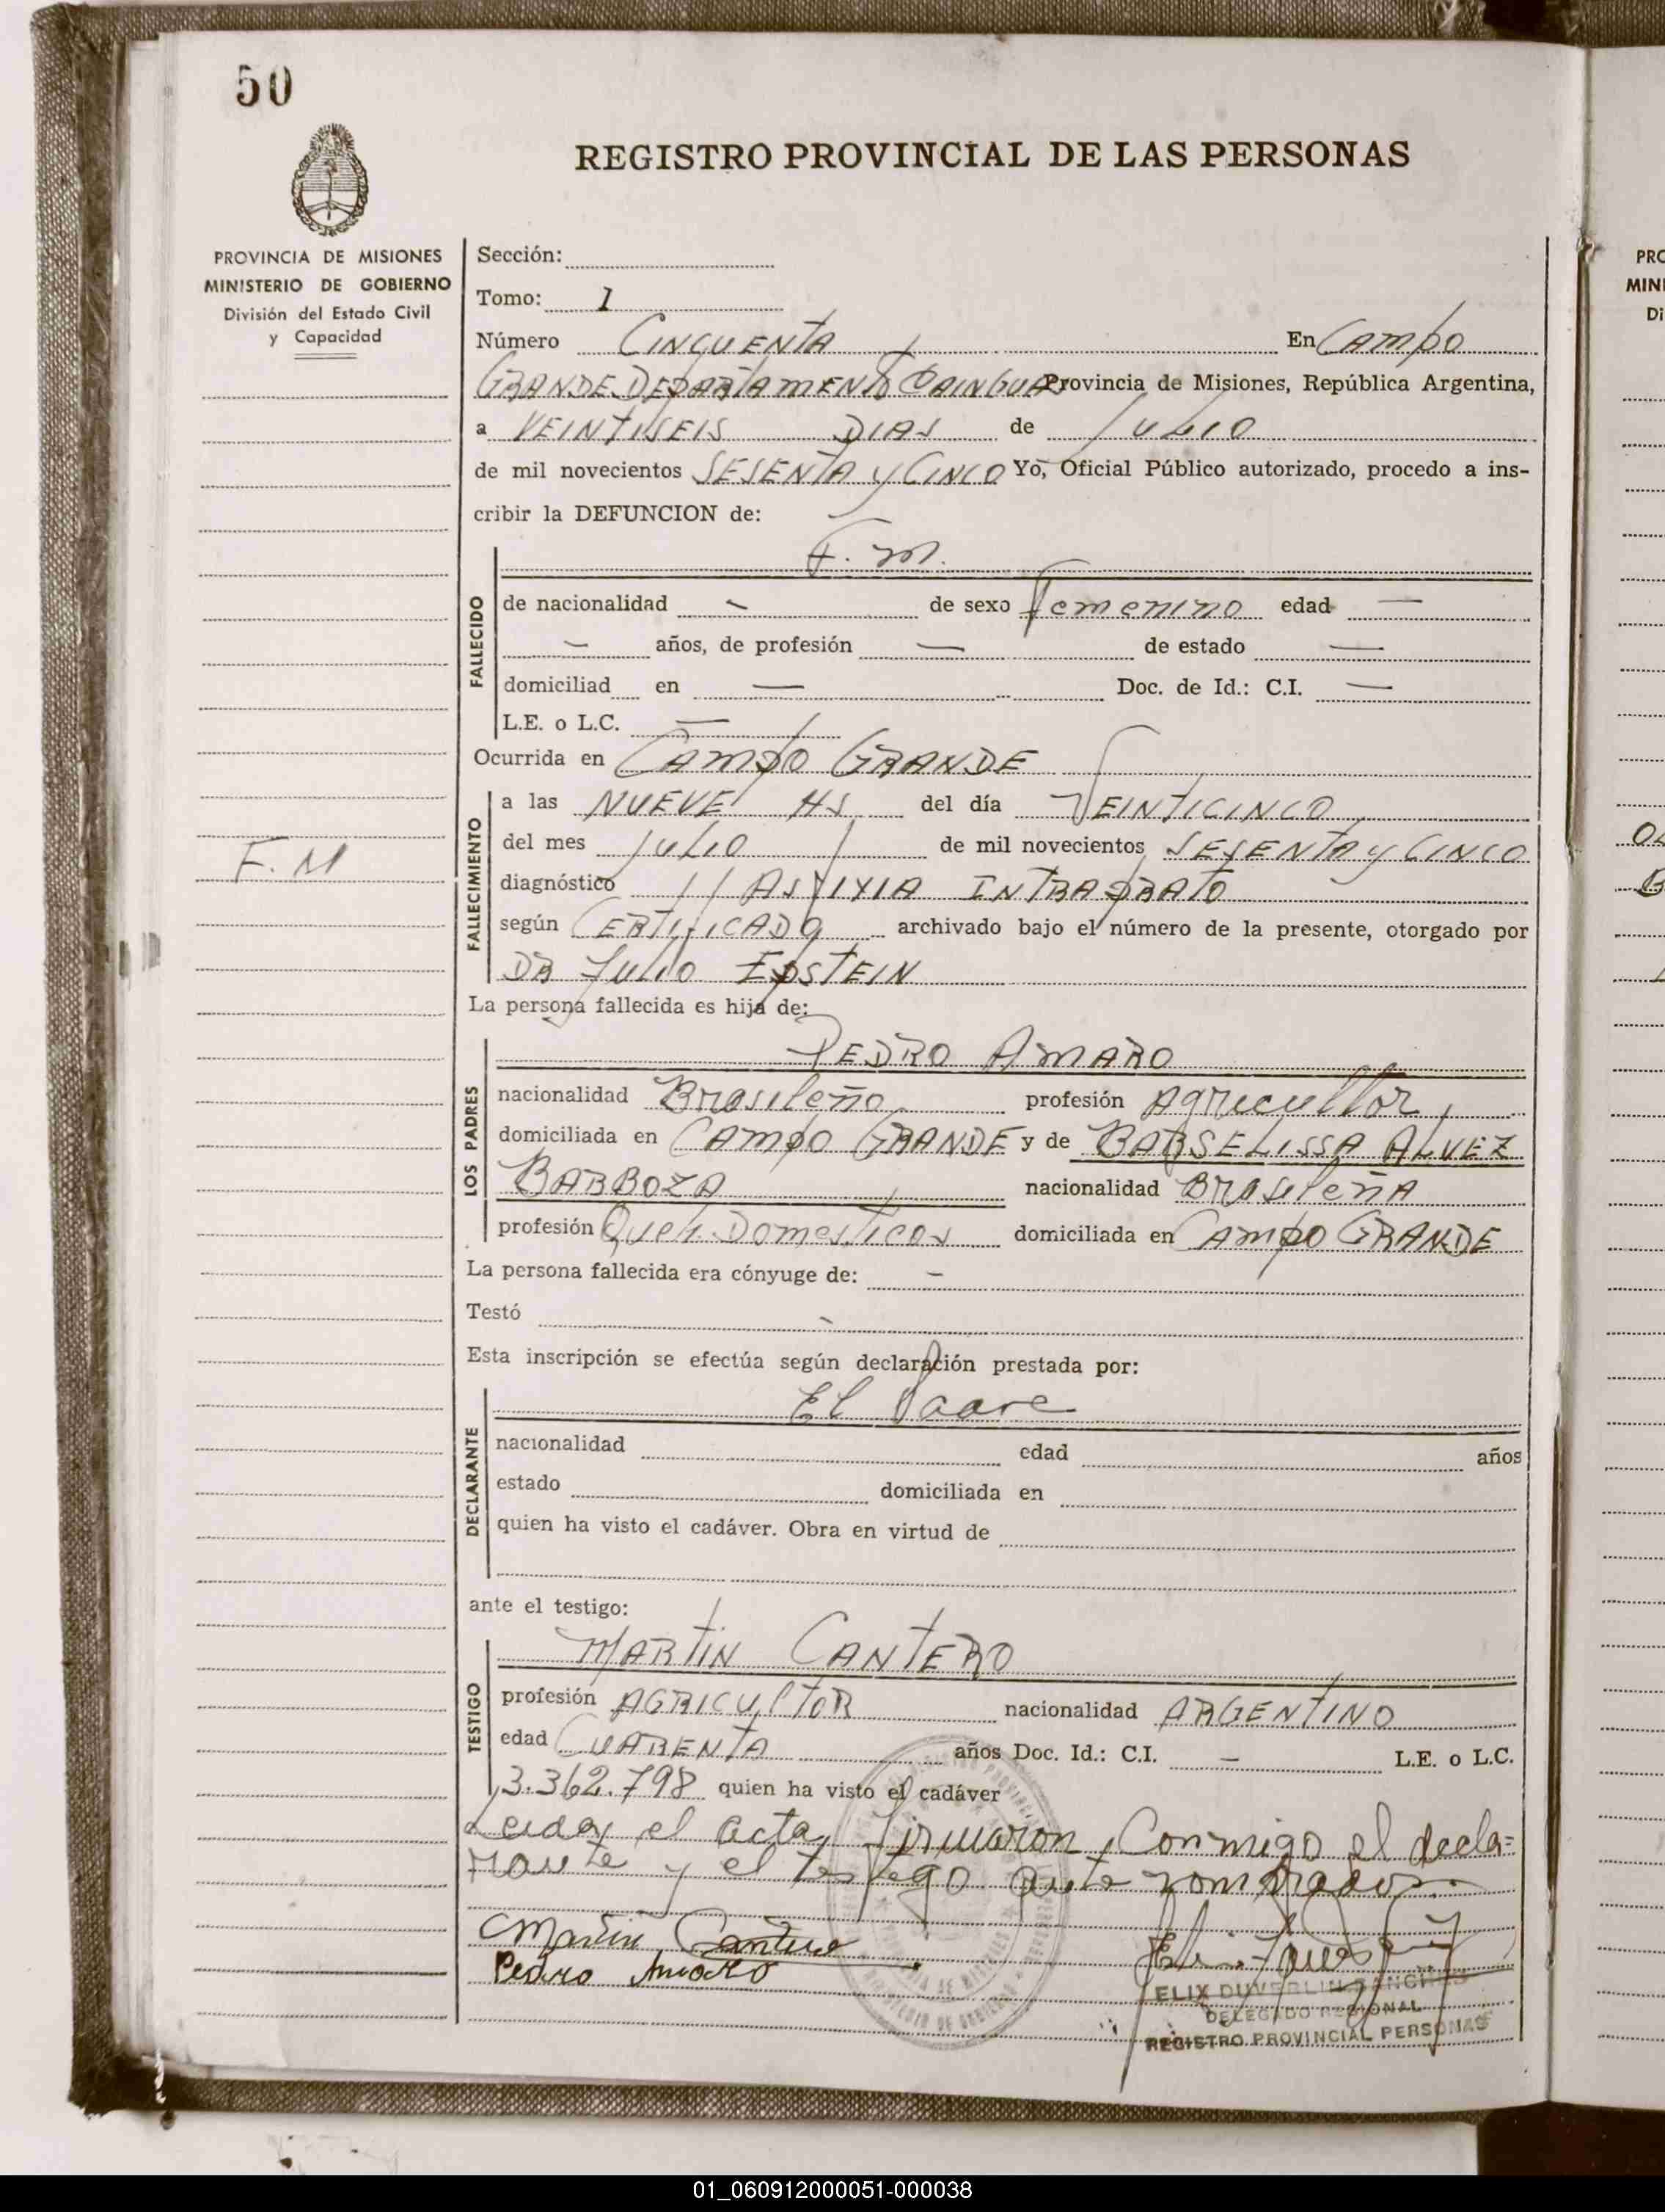 50
REGISTRO PROVINCIAL DE LAS PERSONAS
PROVINCIA DE MISIONES
MINISTERIO DE GOBIERNO
División del Estado Civil
y Capacidad
F. M
Sección:
Tomo: 1
Número CINCUENTA En CAMPO
GRANDE DEPARTAMENTO CAINGUAS Provincia de Misiones, República Argentina,
a VEINTISEIS DIAS de JULIO
de mil novecientos SESENTA y CINCO Yo, Oficial Público autorizado, procedo a ins-
cribir la DEFUNCION de:
F. M.
FALLECIDO
de nacionalidad - de sexo Femenino edad —
— años, de profesión — de estado —
domiciliad en — Doc. de Id.: C.I. —
L.E. o L.C. —
Ocurrida en CAMPO GRANDE
FALLECIMIENTO
a las NUEVE HS del día VEINTICINCO
del mes JULIO de mil novecientos SESENTA y CINCO
diagnóstico ASFIXIA INTRAPRATO
según CERTIFICADO archivado bajo el número de la presente, otorgado por
DR JULIO EPSTEIN
La persona fallecida es hija de:
PEDRO AMARO
LOS PADRES
nacionalidad Brasileño profesión Agricultor
domiciliada en CAMPO GRANDE y de BARSELISSA ALVEZ
BARBOZA nacionalidad BRASILEÑA
profesión Queh. Domesticos domiciliada en CAMPO GRANDE
La persona fallecida era cónyuge de: -
Testó -
Esta inscripción se efectúa según declaración prestada por:
El Padre
DECLARANTE
nacionalidad edad años
estado domiciliada en
quien ha visto el cadáver. Obra en virtud de
ante el testigo:
MARTIN CANTERO
TESTIGO
profesión AGRICULTOR nacionalidad ARGENTINO
edad CUARENTA años Doc. Id.: C.I. — L.E. o L.C.
3.362.798 quien ha visto el cadáver
Leida el acta, firmaron Conmigo el decla=
rante y el testigo ante nombrados.
Martin Cantero
Pedro Amaro
ELIX DUVERLIN SANCHES
DELEGADO REGIONAL
REGISTRO PROVINCIAL PERSONAS
01_060912000051-000038